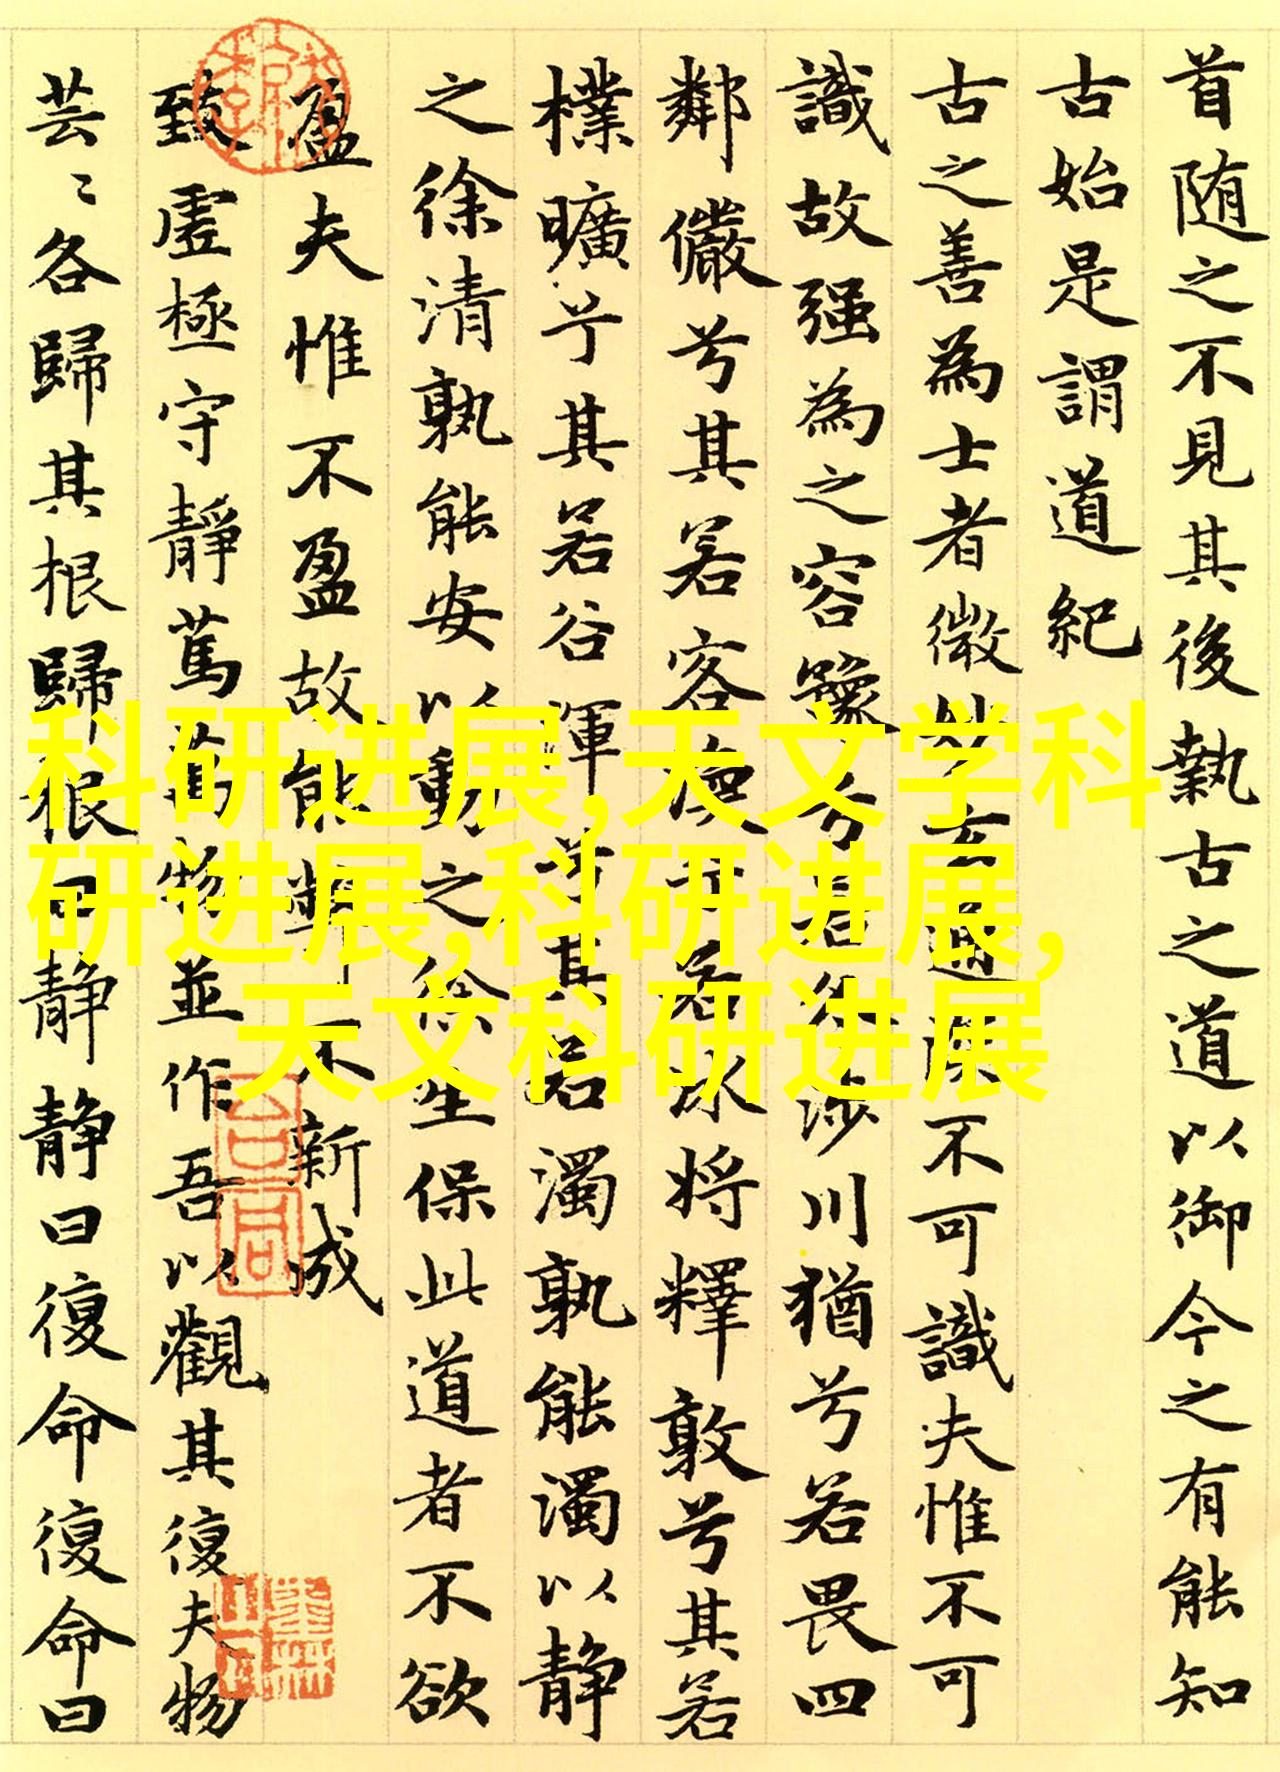 首随之不见其後執古之道以御今之有能知
古始是謂道紀
古之善為士者微妙玄通深不可識夫惟不可
識故强為之容豫兮若冬涉川猶兮若畏四
鄰儼兮其若客渙兮若冰將釋敦兮其若
樸曠兮其若谷渾兮其若濁孰能濁以静
之徐清孰能安以動之徐生保此道者不欲
盈夫惟不盈故能弊不新成
致虚極守靜篤萬物並作吾以觀其復夫物
芸〻各歸其根歸根曰静静曰復命復命曰
科研进展,天文学科
研进展,科研进展,
天文科研进展